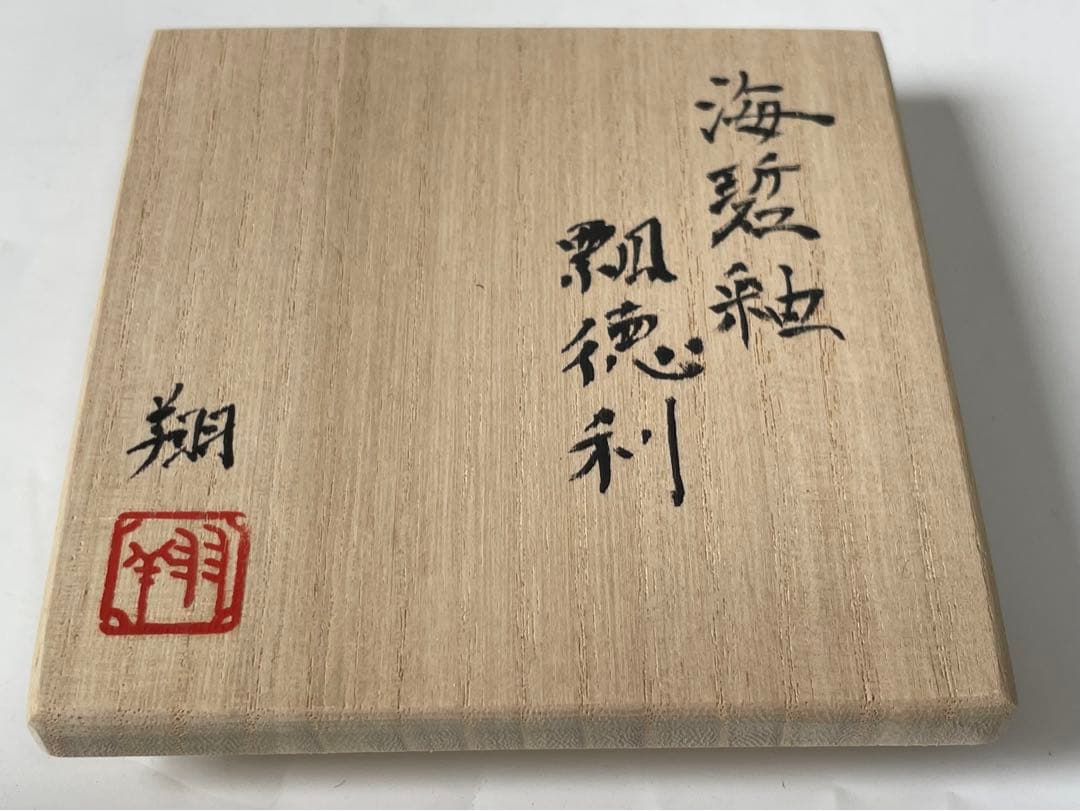 海碧釉
瓢徳利
翔
翔